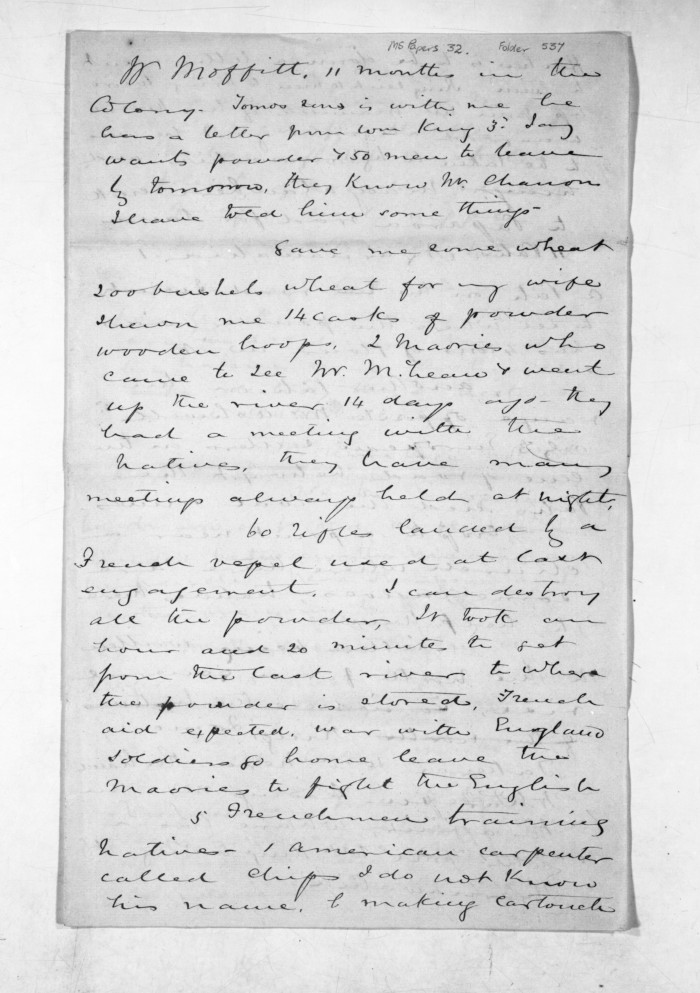 MS Papers 32. Folder 537
W Moffitt, 11 months in the
Colony. Tomos is with me he
has a letter from Wm King 5. Say
wants powder & 50 men to leave
by tomorrow, they know Mr.
I have told him some things
Gave me some wheat
200 bushels wheat for my wife
Shewn me 14 casks of powder
wooden hoops. 2 Maories who
came to see Mr. McLean & went
up the river 14 days ago - they
had a meeting with the
Natives, they have many
meetings always held at night,
60 Rifles landed by a
French vessel used at last
engagement. I can destroy
all the powder, It took an
hour and 20 minutes to get
from the last river to where
the powder is stored, French
aid expected. war with England
Soldiers go home leave the
Maories to fight the English
5 Frenchmen training
Natives - 1 American carpenter
called Chips I do not know
his name. making cartouch